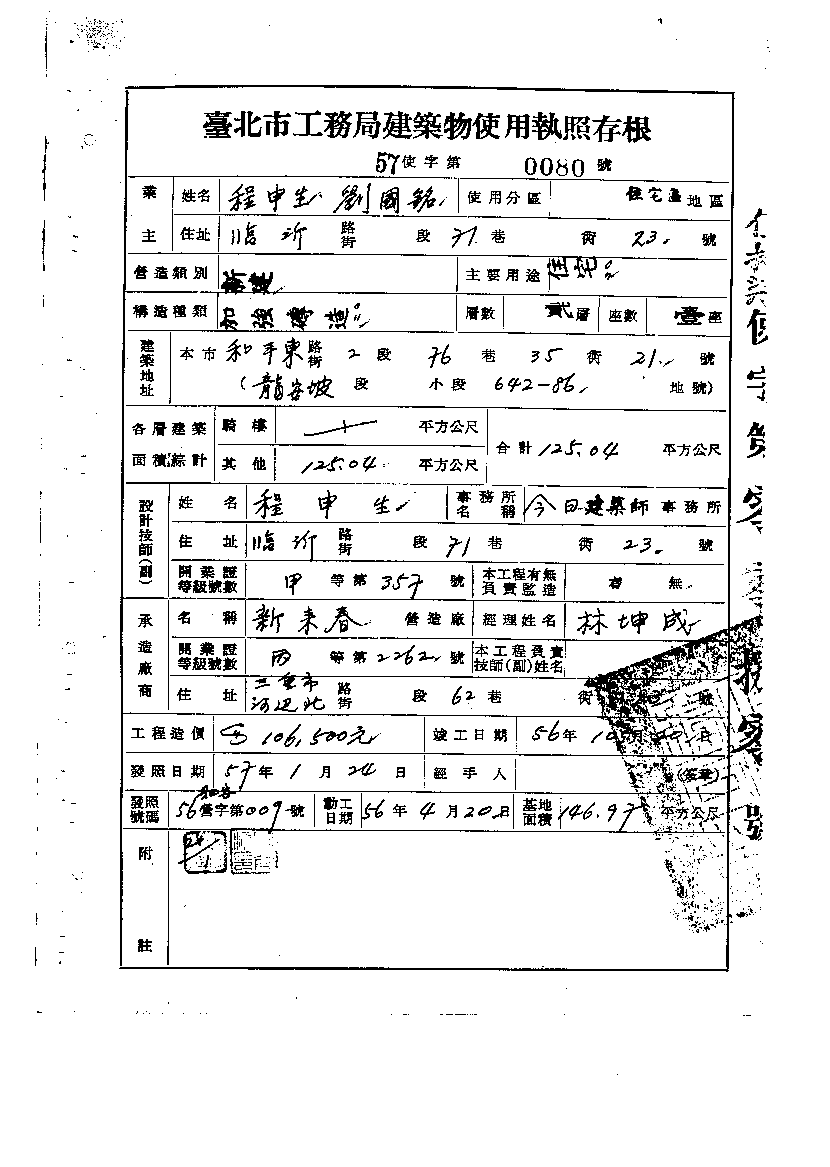 臺北市工務局建築物使用執照存根
57使字第 0080 號
業主 姓名 程申生、劉國銘 使用分區 住宅區 地區
住址 臨沂 路街 段 71 巷 衖 23 號
營造類別 新建 主要用途 住宅
構造種類 加強磚造 層數 貳層 座數 壹座
建築地址 本市 和平東 路街 2 段 76 巷 35 衖 21 號
(龍安坡 段 小段 642-86 地號)
各層建築面積綜計 騎樓 平方公尺 合計 125.04 平方公尺
其他 125.04 平方公尺
設計技師(副) 姓名 程申生 事務所名稱 今日建築師事務所
住址 臨沂 路街 段 71 巷 衖 23 號
開業證等級號數 甲 等第 357 號 本工程有無負責監造 無
承造廠商 名稱 新來春 營造廠 經理姓名 林坤成
開業證等級號數 丙 等第 2262 號 本工程負責技師(副)姓名
住址 三重市河边北 路街 段 62 巷 衖 號
工程造價 106,500元 竣工日期 56年 月 日
發照日期 57年 1月 24日 經手人 (簽章)
發照號碼 56營字第009號 動工日期 56年 4月 20日 基地面積 146.97 平方公尺
附註